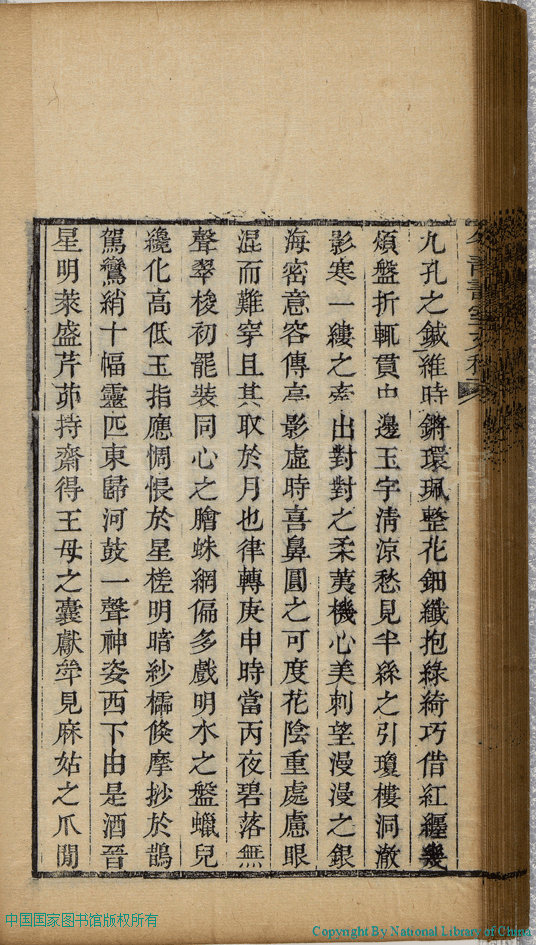 九孔之鍼維時鏘環珮整花鈿纖抱綠綺巧借紅纏幾
煩盤折輒貫中邊玉宇清涼愁見半絲之引瓊樓洞澈
影寒一縷之牽出對對之柔荑機心美刺望漫漫之銀
海密意容傳亭影虛時喜鼻圓之可度花陰重處慮眼
混而難穿且其取於月也律轉庚申時當丙夜碧落無
聲翠梭初罷裝同心之膾蛛網偏多戲明水之盤蠟兒
纔化高低玉指應惆悵於星槎明暗紗櫺倏摩挱於鵲
駕鸞綃十幅靈匹東歸河鼓一聲神姿西下由是酒晉
星明萊盛芹茆持齋得王母之囊獻斝見麻姑之爪閒
中国国家图书馆版权所有
Copyright By National Library of China